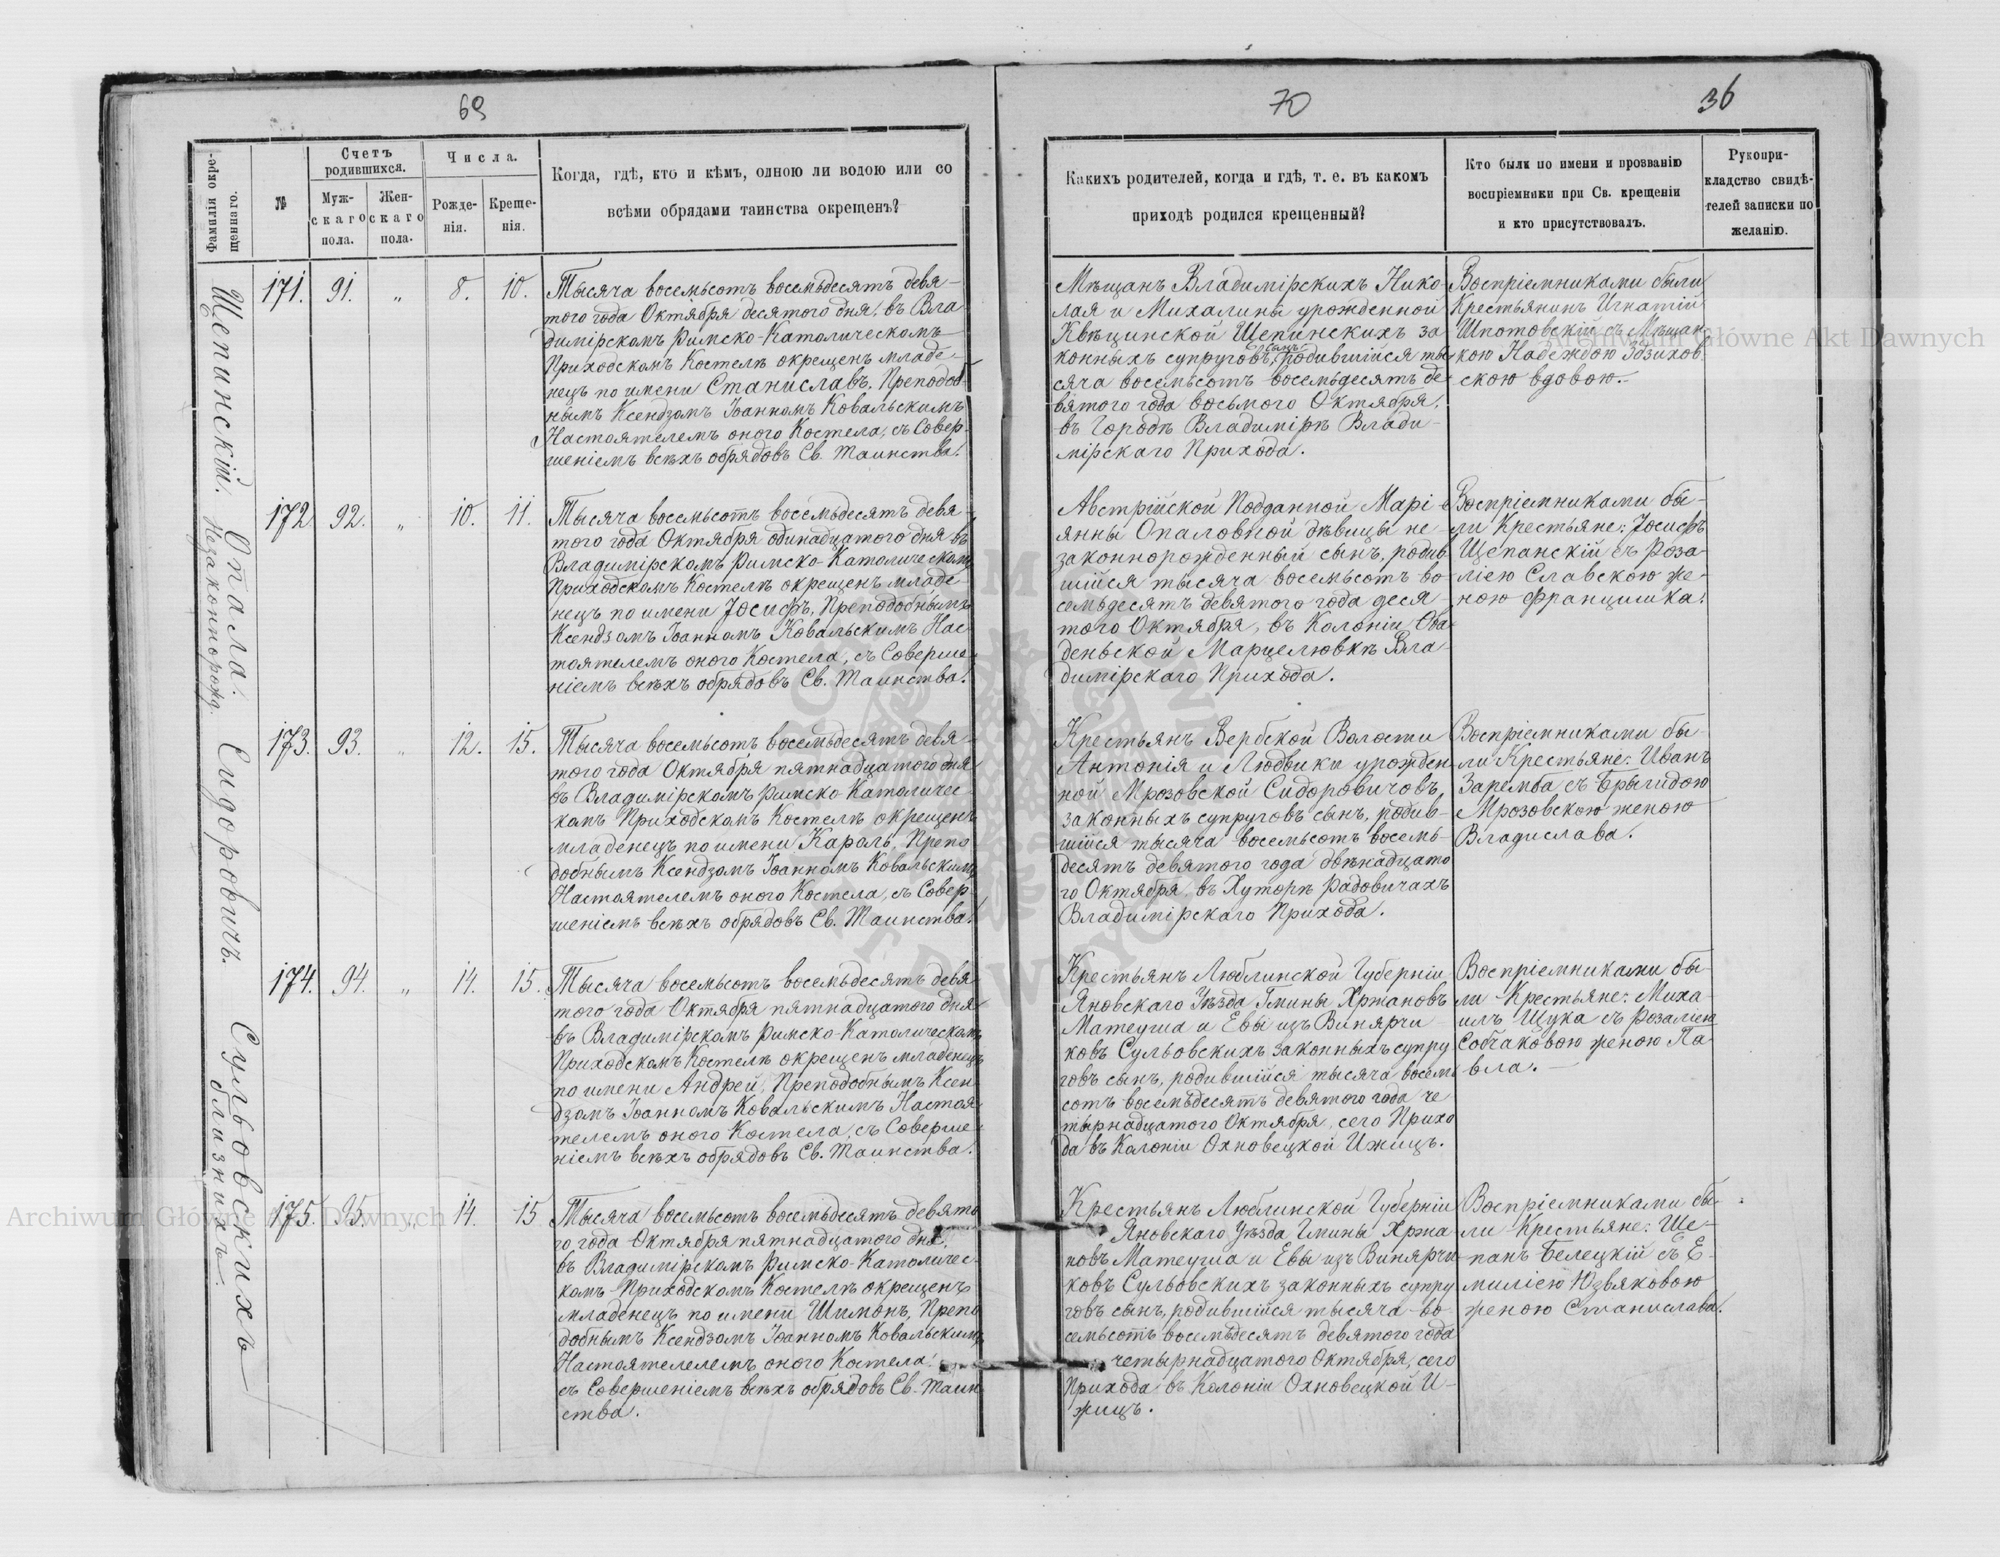 69
70
36
Фамилія окре-
щеннаго.
№
Счетъ
родившихся.
Муж-
скаго
пола.
Жен-
скаго
пола.
Числа.
Рожде-
нія.
Креще-
нія.
Когда, гдѣ, кто и кѣмъ, одною ли водою или со
всѣми обрядами таинства окрещенъ?
Какихъ родителей, когда и гдѣ, т. е. въ какомъ
приходѣ родился крещенный?
Кто были по имени и прозванію
воспріемники при Св. крещеніи
и кто присутствовалъ.
Рукопри-
кладство свидѣ-
телей записки по
желанію.
Щепинскій.
171. 91. „ 8. 10.
Тысяча восемьсотъ восемьдесятъ девя-
того года Октября десятого дня, въ Вла-
димірскомъ Римско-Католическомъ
Приходскомъ Костелѣ окрещенъ младе-
нецъ по имени Станиславъ, Преподоб-
нымъ Ксендзомъ Іоанномъ Ковальскимъ
Настоятелемъ оного Костела, съ Совер-
шеніемъ всѣхъ обрядовъ Св. Таинства.
Мѣщанъ Владимірскихъ Нико-
лая и Михалины урожденной
Квѣцинской Щепинскихъ за-
конныхъ супруговъ, сынъ, родившійся ты-
сяча восемьсотъ восемьдесятъ де-
вятого года восьмого Октября,
въ Городѣ Владимірѣ Влади-
мірскаго Прихода.
Воспріемниками были
Крестьянинъ Игнатій
Шпотовскій съ Мѣщан-
кою Надеждою Здзихов-
скою вдовою.
Опала.
Незаконнорожд.
172 92. „ 10. 11.
Тысяча восемьсотъ восемьдесятъ девя-
того года Октября одинадцатого дня въ
Владимірскомъ Римско-Католическомъ
Приходскомъ Костелѣ окрещенъ младе-
нецъ по имени Іосифъ, Преподобнымъ
Ксендзомъ Іоанномъ Ковальскимъ Нас-
тоятелемъ оного Костела, съ Соверше-
ніемъ всѣхъ обрядовъ Св. Таинства.
Австрійской Подданной Марі-
янны Опаловной дѣвицы не-
законнорожденный сынъ, родив-
шійся тысяча восемьсотъ во-
семьдесятъ девятого года деся-
того Октября, въ Колоніи Ова-
деньской Марцелювкѣ Вла-
димірскаго Прихода.
Воспріемниками бы-
ли Крестьяне: Іосифъ
Щепанскій съ Роза-
ліею Славскою же-
ною Францишка.
Сидоровичъ.
173. 93. „ 12. 15.
Тысяча восемьсотъ восемьдесятъ девя-
того года Октября пятнадцатого дня
въ Владимірскомъ Римско-Католичес-
комъ Приходскомъ Костелѣ окрещенъ
младенецъ по имени Кароль, Препо-
добнымъ Ксендзомъ Іоанномъ Ковальскимъ
Настоятелемъ оного Костела, съ Совер-
шеніемъ всѣхъ обрядовъ Св. Таинства.
Крестьянъ Вербской Волости
Антонія и Людвики урожден-
ной Мрозовской Сидоровичовъ,
законныхъ супруговъ сынъ, родив-
шійся тысяча восемьсотъ восемь-
десятъ девятого года двѣнадцато-
го Октября, въ Хуторѣ Радовичахъ
Владимірскаго Прихода.
Воспріемниками бы-
ли Крестьяне: Иванъ
Заремба съ Брыгидою
Мрозовскою женою
Владислава.
Сульовскихъ
близнихъ.
174. 94. „ 14. 15.
Тысяча восемьсотъ восемьдесятъ девя-
того года Октября пятнадцатого дня
въ Владимірскомъ Римско-Католическомъ
Приходскомъ Костелѣ окрещенъ младенецъ
по имени Андрей, Преподобнымъ Ксен-
дзомъ Іоанномъ Ковальскимъ Настоя-
телемъ оного Костела, съ Соверше-
ніемъ всѣхъ обрядовъ Св. Таинства.
Крестьянъ Люблинской Губерніи
Яновскаго Уѣзда Гмины Хржановъ
Матеуша и Евы изъ Винярчи-
ковъ Сульовскихъ законныхъ супру-
говъ сынъ, родившійся тысяча восемь-
сотъ восемьдесятъ девятого года че-
тырнадцатого Октября, сего Прихо-
да въ Колоніи Охновецкой Ижицъ.
Воспріемниками бы-
ли Крестьяне: Миха-
илъ Щука съ Розаліею
Собчаковою женою Па-
вла.
175. 95. „ 14. 15
Тысяча восемьсотъ восемьдесятъ девято-
го года Октября пятнадцатого дня,
въ Владимірскомъ Римско-Католичес-
комъ Приходскомъ Костелѣ окрещенъ
младенецъ по имени Шимонъ, Препо-
добнымъ Ксендзомъ Іоанномъ Ковальскимъ
Настоятелелемъ оного Костела,
съ Совершеніемъ всѣхъ обрядовъ Св. Таин-
ства.
Крестьянъ Люблинской Губерніи
Яновскаго Уѣзда Гмины Хржа-
новъ Матеуша и Евы изъ Винярчи-
ковъ Сульовскихъ законныхъ супру-
говъ сынъ, родившійся тысяча во-
семьсотъ восемьдесятъ девятого года
четырнадцатого Октября, сего
Прихода въ Колоніи Охновецкой И-
жицъ.
Воспріемниками бы-
ли Крестьяне: Ще-
панъ Белецкій съ Е-
миліею Юзвяковою
женою Станислава.
Archiwum Główne Akt Dawnych
Archiwum Główne Akt Dawnych